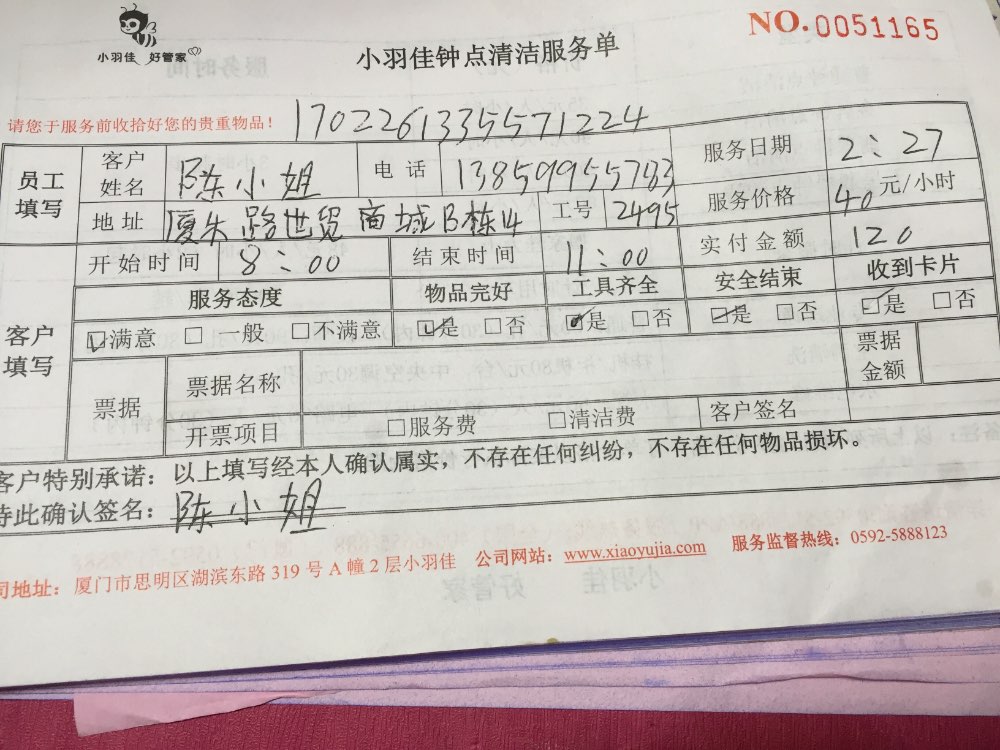 小羽佳 好管家
小羽佳钟点清洁服务单
NO.0051165
请您于服务前收拾好您的贵重物品!
1702261335571224
员工填写 客户姓名 陈小姐 电话 13859955783 服务日期 2:27
地址 厦禾路世贸商城B栋14 工号 2495 服务价格 40元/小时
开始时间 8:00 结束时间 11:00 实付金额 120
客户填写 服务态度 物品完好 工具齐全 安全结束 收到卡片
☑满意 □一般 □不满意 ☑是 □否 ☑是 □否 ☑是 □否 ☑是 □否
票据 票据名称 票据金额
开票项目 □服务费 □清洁费 客户签名
客户特别承诺:以上填写经本人确认属实,不存在任何纠纷,不存在任何物品损坏。
特此确认签名:陈小姐
司地址:厦门市思明区湖滨东路 319 号 A 幢 2 层小羽佳 公司网站:www.xiaoyujia.com 服务监督热线:0592-5888123